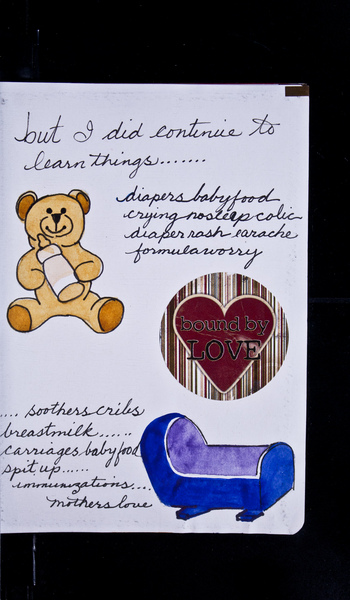 but I did continue to
learn things.......
diapers babyfood
crying nosleep colic
diaper rash earache
formula worry
bound by
LOVE
.... soothers cribs
breastmilk......
carriages babyfood
spit up......
immunizations....
mothers love